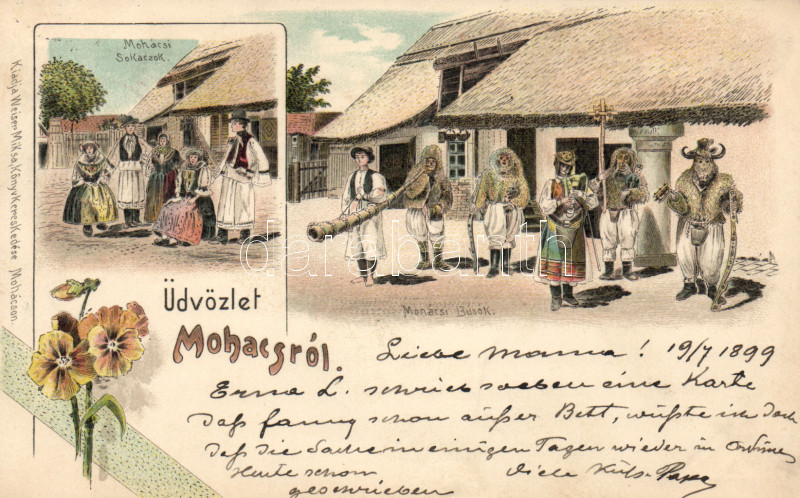 Mohácsi
Sokaczok.
Kiadja Weiser Miksa, Könyvkereskedése Mohácson.
darabanth
Mohácsi Busók.
Üdvözlet
Mohácsról.
Liebe Mama! 19/7 1899
Erna L. schrieb soeben eine Karte
daß Fanny schon außer Bett, wußte ich doch
daß die Sache in einigen Tagen wieder in
Heute schon Viele
geschrieben